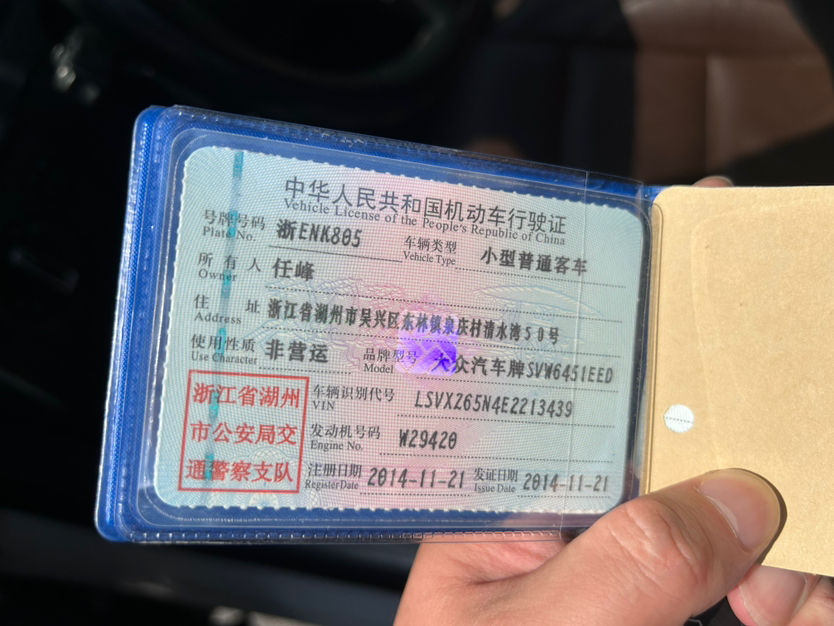 中华人民共和国机动车行驶证
Vehicle License of the People's Republic of China
号牌号码 浙ENK805 车辆类型 小型普通客车
Plate No. Vehicle Type
所有人 任峰
Owner
住址 浙江省湖州市吴兴区东林镇泉庆村清水湾50号
Address
使用性质 非营运 品牌型号 大众汽车牌SVW6451EED
Use Character Model
浙江省湖州
市公安局交
通警察支队
车辆识别代号 LSVXZ65N4E2213439
VIN
发动机号码 W29420
Engine No.
注册日期 2014-11-21 发证日期 2014-11-21
Register Date Issue Date